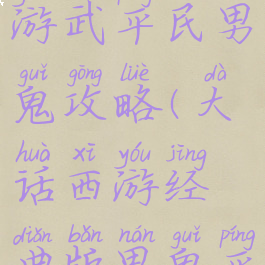 游武平民男
guǐ gōng lüè dà
鬼攻略(大
huà xī yóu jīng
话西游经
diǎn bǎn nán guǐ píng
典版男鬼平